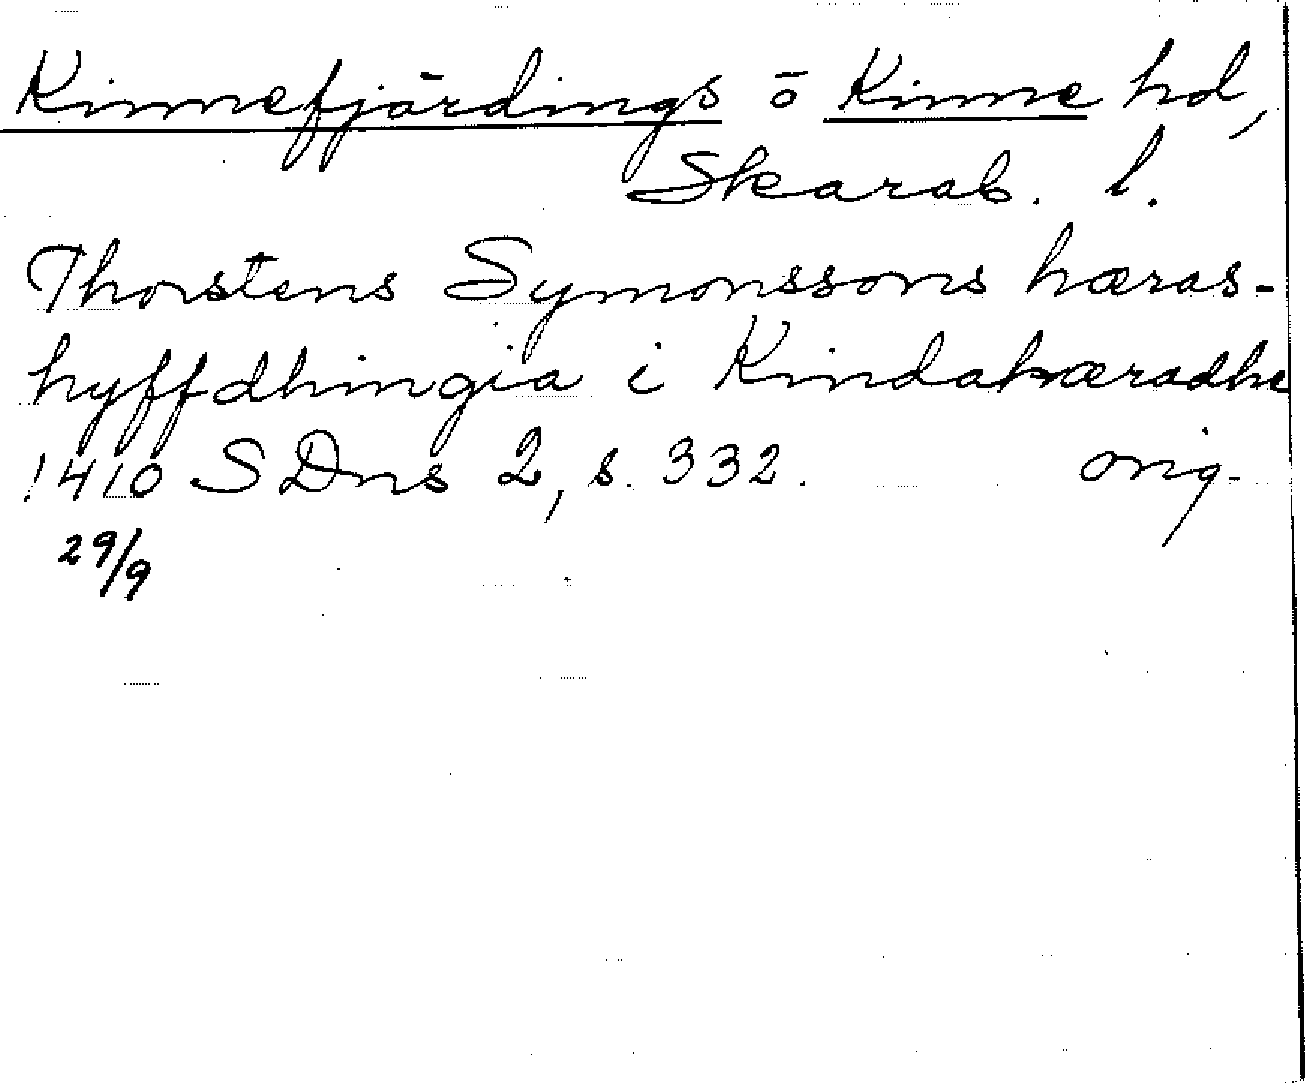 Kinnefjärdings o Kinne hd,
Skarab. l.
Thorstens Symonssons hæras-
hyffdhingia i Kindahæradhe
1410 SDns 2, s. 332. orig.
29/9